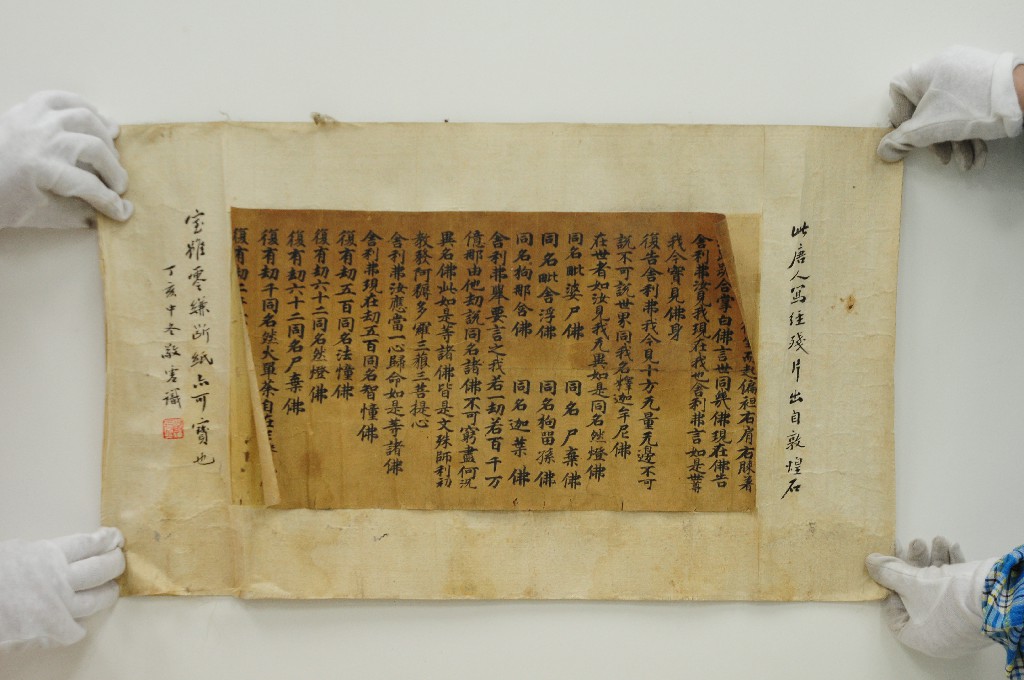 此唐人寫經殘片出自敦煌石
起偏袒右肩右膝著
合掌白佛言世佛現在佛告
舍利弗汝見我現在我也舍利弗言如是世尊
我今實見佛身
復告舍利弗我今見十方无量无邊不可
說不可說世界同我名釋迦牟尼佛
在世者如汝見我无異如是同名然燈佛
同名毗婆尸佛 同名尸棄佛
同名毗舍浮佛 同名拘留孫佛
同名拘那含佛 同名迦葉佛
舍利弗舉要言之我若一劫若百千万
億那由他劫說同名諸佛不可窮盡何況
異名佛此如是等諸佛皆是文殊師利初
教發阿耨多羅三藐三菩提心
舍利弗汝應當一心歸命如是等諸佛
舍利弗現在劫五百同名智憧佛
復有劫五百同名法憧佛
復有劫六十二同名然燈佛
復有劫六十二同名尸棄佛
復有劫千同名然火單荼自在
復有劫二
室雖零縑斷紙亦可寶也
丁亥中冬敬識